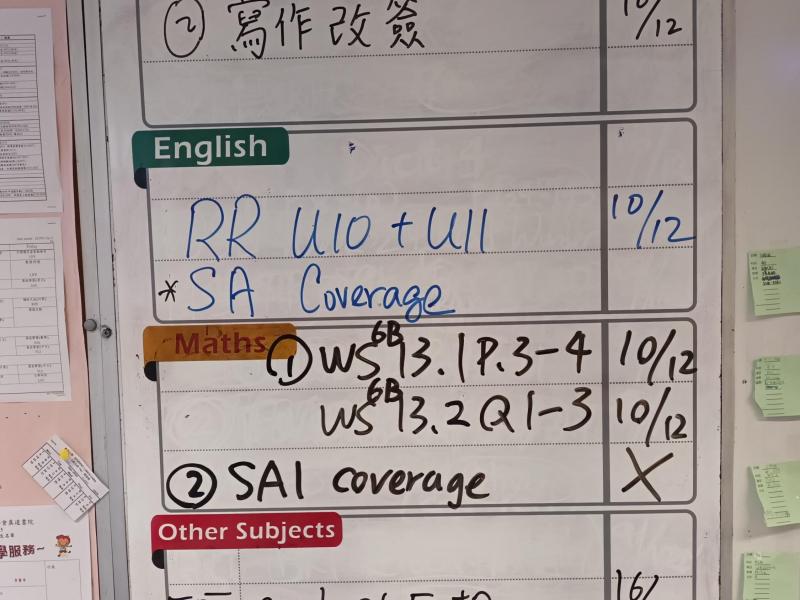 ② 寫作改簽 10/12
English
RR U10 + U11 10/12
* SA Coverage
Maths
① WS 6B 13.1 P.3-4 10/12
WS 6B 13.2 Q1-3 10/12
② SA1 coverage X
Other Subjects
16/
學服務~